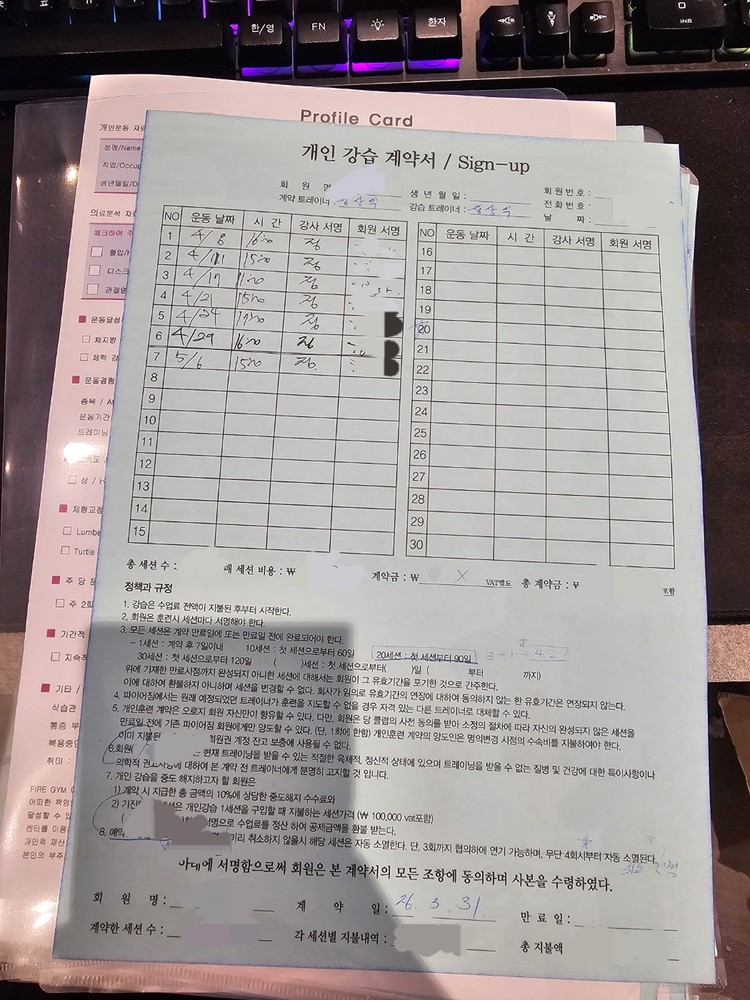 한/영
FN
한자
INS
Profile Card
개인운동
성명/Name
직업/Occup
생년월일/D
의료분석
체크하여
혈압/H
디스크
관절염
운동달성
체지방
체력
운동경험
종목 /
운동기간
트레이닝
상 / H
체형교정
Lumba
Turtle
주 당
주 2회
기간적
지속적
기타 /
식습관
통증 부
복용중인
취미 :
FIRE GYM
어떠한 책임
달성할 수
센터를 이용
개인적 재산
본인의 부주
개인 강습 계약서 / Sign-up
회 원 명
생 년 월 일 :
회 원 번 호 :
계약 트레이너 :
강습 트레이너 :
전 화 번 호 :
날 짜 :
NO 운동 날짜 시 간 강사 서명 회원 서명
1 4/8 16:00 정
2 4/11 15:00 정
3 4/17 11:00 정
4 4/21 15:00 정
5 4/24 17:00 정
6 4/29 16:00 정
7 5/6 15:00 정
8
9
10
11
12
13
14
15
NO 운동 날짜 시 간 강사 서명 회원 서명
16
17
18
19
20
21
22
23
24
25
26
27
28
29
30
총 세션 수 : 매 세션 비용 : ₩ 계약금 : ₩ X VAT별도 총 계약금 : ₩ 포함
정책과 규정
1. 강습은 수업료 전액이 지불된 후부터 시작한다.
2. 회원은 훈련시 세션마다 서명해야 한다.
3. 모든 세션은 계약 만료일에 또는 만료일 전에 완료되어야 한다.
– 1세션 : 계약 후 7일이내 10세션 : 첫 세션으로부터 60일 20세션 : 첫 세션부터 90일
30세션 : 첫 세션으로부터 120일 ( )세션 : 첫 세션으로부터( )일 ( 부터 까지)
위에 기재한 만료시점까지 완성되지 아니한 세션에 대해서는 회원이 그 유효기간을 포기한 것으로 간주한다.
이에 대하여 환불하지 아니하며 세션을 변경할 수 없다. 회사가 임의로 유효기간의 연장에 대하여 동의하지 않는 한 유효기간은 연장되지 않는다.
4. 파이어짐에서는 원래 예정되었던 트레이너가 훈련을 지도할 수 없을 경우 자격 있는 다른 트레이너로 대체할 수 있다.
5. 개인훈련 계약은 오로지 회원 자신만이 향유할 수 있다. 다만, 회원은 당 클럽의 사전 동의를 받아 소정의 절차에 따라 자신의 완성되지 않은 세션을
만료일 전에 기존 파이어짐 회원에게만 양도할 수 있다. (단, 1회에 한함) 개인훈련 계약의 양도인은 명의변경 시점의 수속비를 지불하여야 한다.
이미 지불된 회원권 계정 잔고 보충에 사용될 수 없다.
6. 회원 현재 트레이닝을 받을 수 있는 적절한 육체적, 정신적 상태에 있으며 트레이닝을 받을 수 없는 질병 및 건강에 대한 특이사항이나
의학적 권고사항에 대하여 본 계약 전 트레이너에게 분명히 고지할 것 입니다.
7. 개인 강습을 중도 해지하고자 할 회원은
1) 계약 시 지급한 총 금액의 10%에 상당한 중도해지 수수료와
2) 기진 세션은 개인강습 1세션을 구입할 때 지불하는 세션가격 (₩ 100,000 vat포함)
서명으로 수업료를 정산 하여 공제금액을 환불 받는다.
8. 예약 미리 취소하지 않을시 해당 세션은 자동 소멸한다. 단, 3회까지 협의하에 연기 가능하며, 무단 4회시부터 자동 소멸된다.
아래에 서명함으로써 회원은 본 계약서의 모든 조항에 동의하며 사본을 수령하였다.
회 원 명 : 계 약 일 : 26. 3. 31. 만 료 일 :
계약한 세션 수 : 각 세션별 지불내역 : 총 지불액